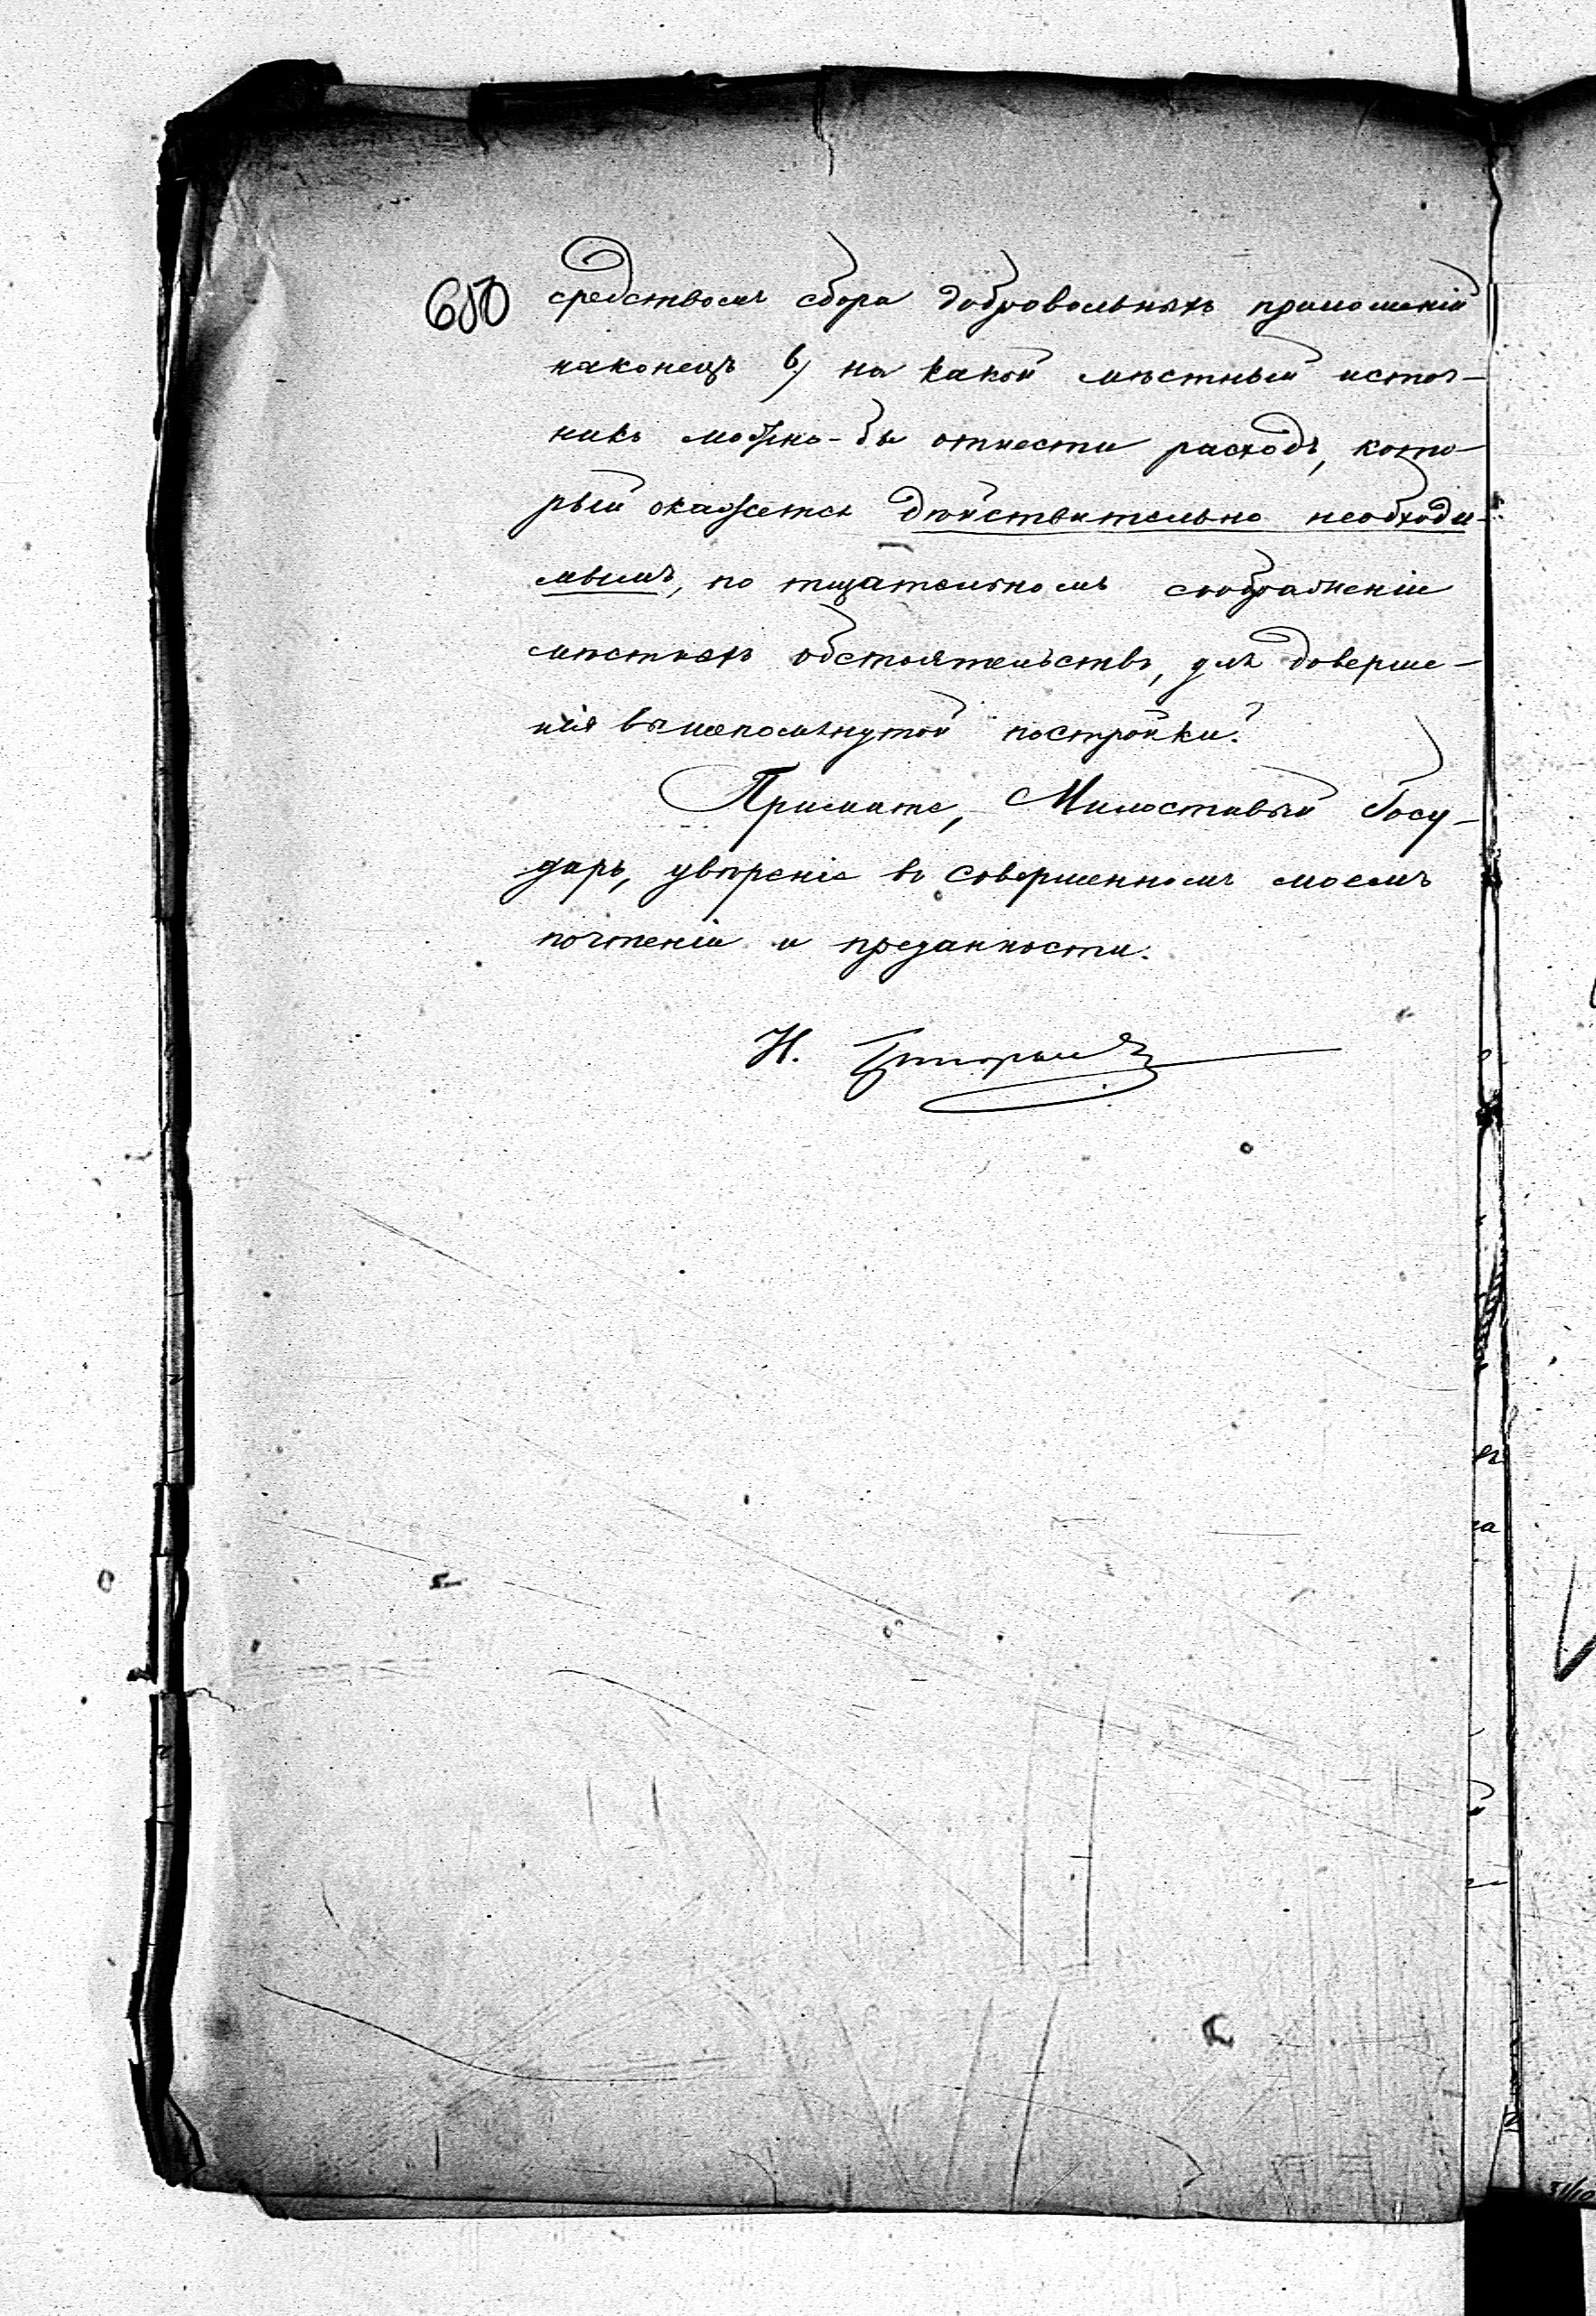 650 средствомъ сбора добровольныхъ приношеній
наконецъ в) на какой мѣстный источ-
никъ можно-бы отнести расходъ, кото-
рый окажется дѣйствительно необходи-
мымъ, по тщательномъ соображеніи
мѣстныхъ обстоятельствъ, для доверше-
нія вышепомянутой постройки?
Примите, Милостивый Госу-
дарь, увѣреніе въ совершенномъ моемъ
почтеніи и преданности.
Н.